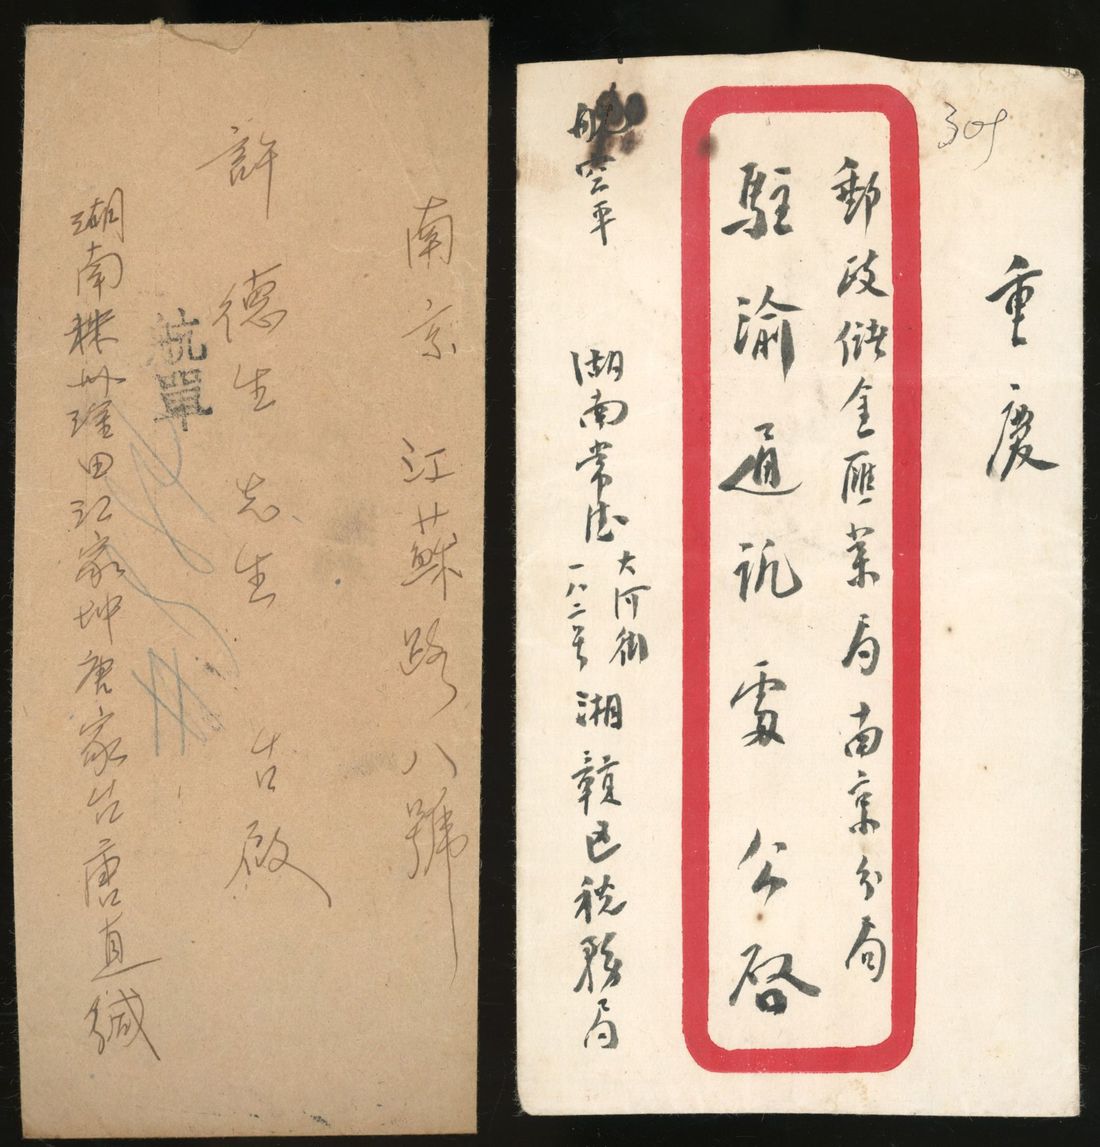 南京江蘇路八號
許德生先生 吉啟
航單
湖南株州瑾田江家坤唐家台唐直緘
309
重慶
郵政儲金匯業局南京分局
駐渝通訊處公啓
航空平
湖南常德大河街一八二號湘贛區稅務局